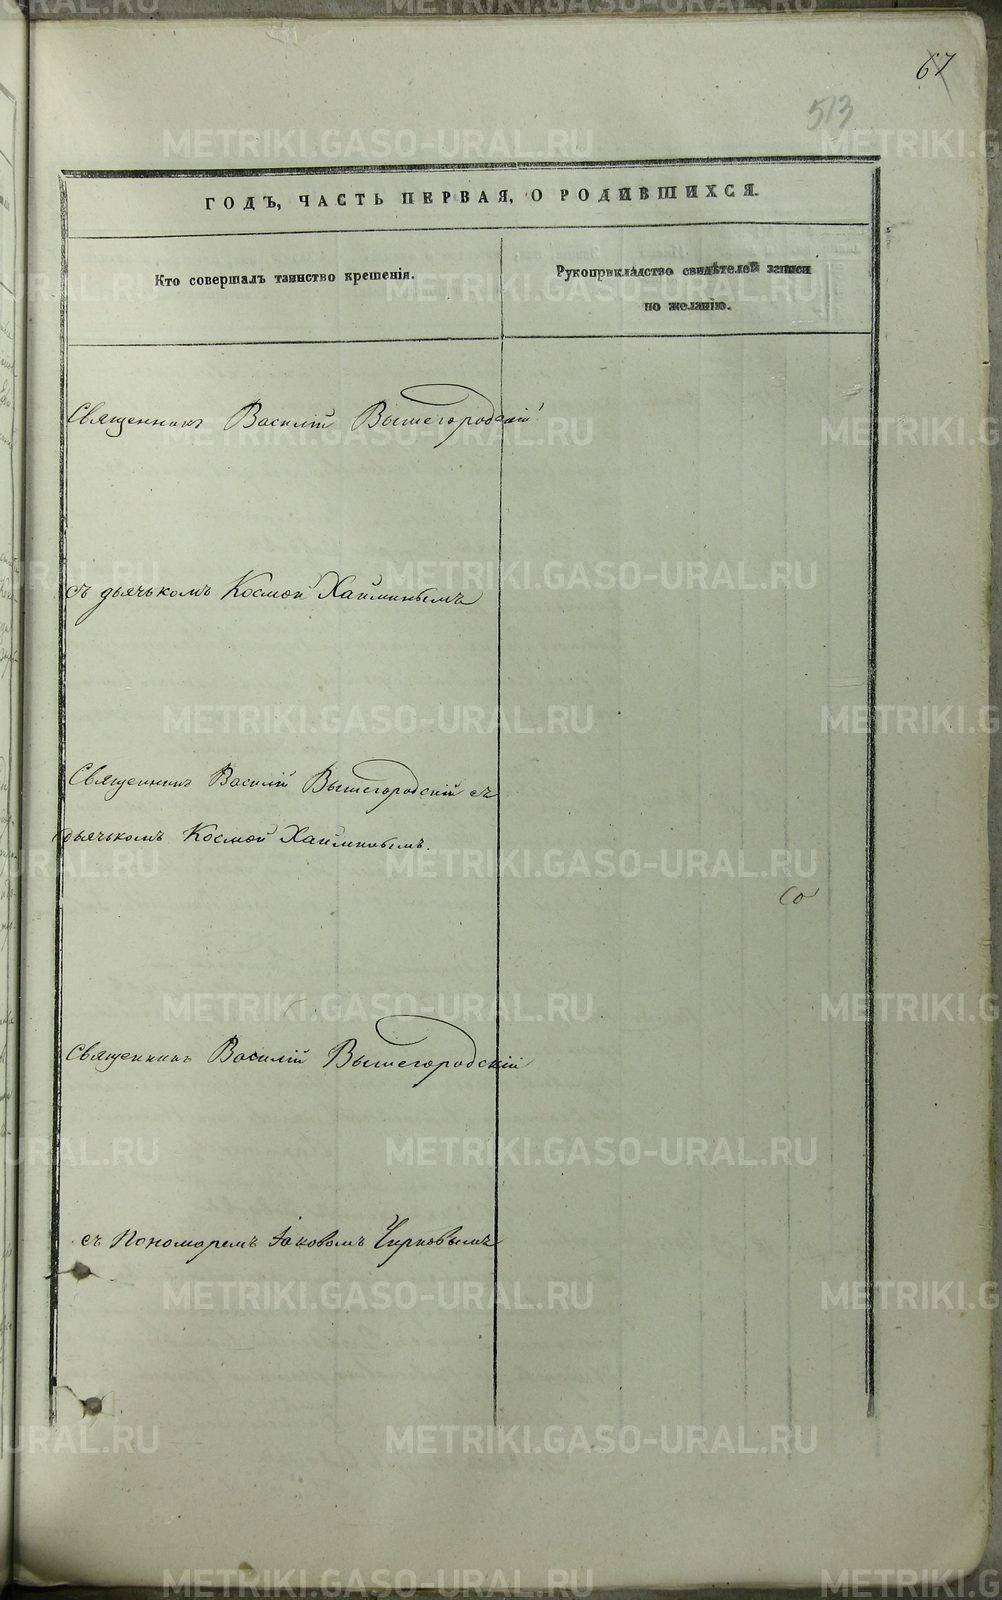 67
513
ГОДЪ, ЧАСТЬ ПЕРВАЯ, О РОДИВШИХСЯ.
Кто совершалъ таинство крещенія.
Рукоприкладство свидѣтелей записи
по желанію.
Священникъ Василій Вышегородскій
съ дьячькомъ Космой Хайминымъ
Священникъ Василій Вышегородскій съ
дьячькомъ Космой Хайминымъ.
Священникъ Василій Вышегородскій
съ Пономаремъ Іаковомъ Чирковымъ
METRIKI.GASO-URAL.RU